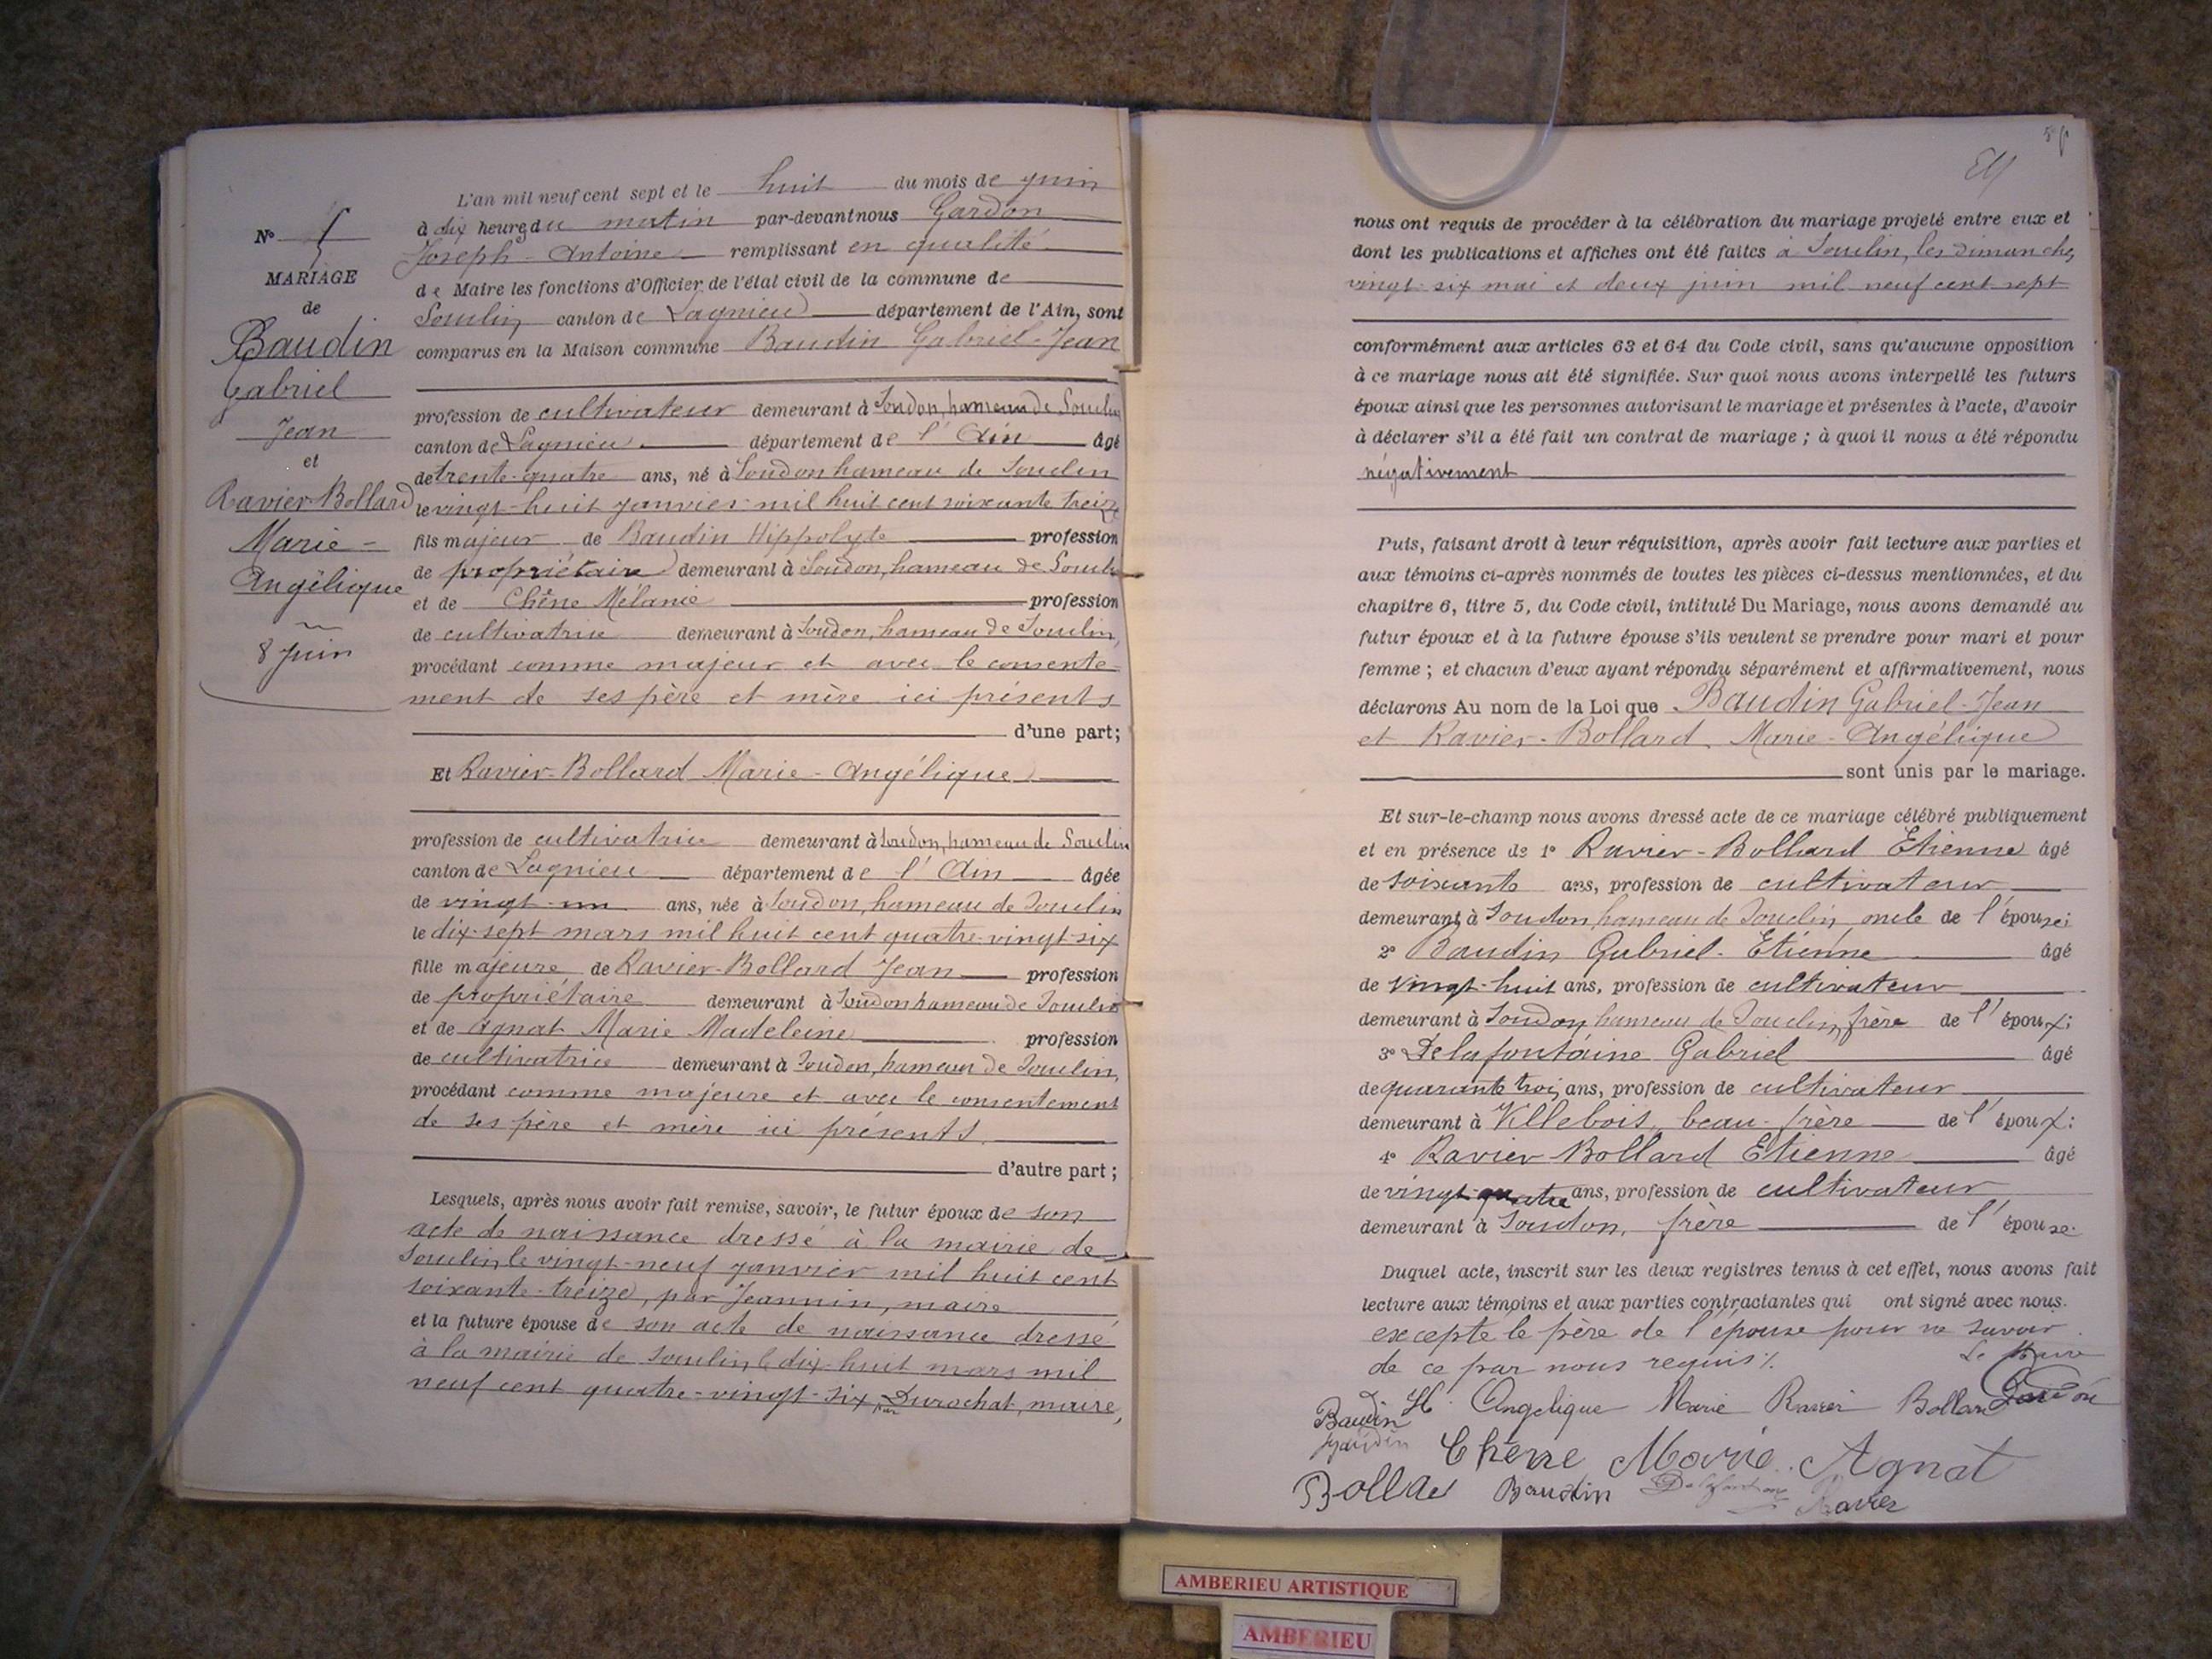 N°
MARIAGE
de
Baudin
Gabriel
Jean
et
Ravier-Bollard
Marie-
Angélique
8 Juin
L'an mil neuf cent sept et le huit du mois de juin
à dix heures du matin par-devant nous Gardon
Joseph-Antoine remplissant en qualité
de Maire les fonctions d'Officier de l'état civil de la commune de
Souclin canton de Lagnieu département de l'Ain, sont
comparus en la Maison commune Baudin Gabriel-Jean
profession de cultivateur demeurant à Soudon, hameau de Souclin
canton de Lagnieu département de l'Ain âgé
de trente-quatre ans, né à Soudon hameau de Souclin
le vingt-huit janvier mil huit cent soixante treize
fils majeur de Baudin Hippolyte profession
de propriétaire demeurant à Soudon, hameau de Souclin
et de Chêne Mélanie profession
de cultivatrice demeurant à Soudon, hameau de Souclin,
procédant comme majeur et avec le consente-
ment de ses père et mère ici présents
d'une part;
Et Ravier-Bollard Marie-Angélique
profession de cultivatrice demeurant à Soudon, hameau de Souclin
canton de Lagnieu département de l'Ain âgée
de vingt-un ans, née à Soudon, hameau de Souclin
le dix-sept mars mil huit cent quatre-vingt-six
fille majeure de Ravier-Bollard Jean profession
de propriétaire demeurant à Soudon hameau de Souclin
et de Agnat Marie Madeleine profession
de cultivatrice demeurant à Soudon, hameau de Souclin,
procédant comme majeure et avec le consentement
de ses père et mère ici présents.
d'autre part;
Lesquels, après nous avoir fait remise, savoir, le futur époux de son
acte de naissance dressé à la mairie de
Souclin, le vingt-neuf janvier mil huit cent
soixante-treize, par Jeannin, maire
et la future épouse de son acte de naissance dressé
à la mairie de Souclin, le dix-huit mars mil
neuf cent quatre-vingt-six par Durochat, maire,
nous ont requis de procéder à la célébration du mariage projeté entre eux et
dont les publications et affiches ont été faites à Souclin, les dimanches
vingt-six mai et deux juin mil neuf cent sept
conformément aux articles 63 et 64 du Code civil, sans qu'aucune opposition
à ce mariage nous ait été signifiée. Sur quoi nous avons interpellé les futurs
époux ainsi que les personnes autorisant le mariage et présentes à l'acte, d'avoir
à déclarer s'il a été fait un contrat de mariage ; à quoi il nous a été répondu
négativement
Puis, faisant droit à leur réquisition, après avoir fait lecture aux parties et
aux témoins ci-après nommés de toutes les pièces ci-dessus mentionnées, et du
chapitre 6, titre 5, du Code civil, intitulé Du Mariage, nous avons demandé au
futur époux et à la future épouse s'ils veulent se prendre pour mari et pour
femme ; et chacun d'eux ayant répondu séparément et affirmativement, nous
déclarons Au nom de la Loi que Baudin Gabriel-Jean
et Ravier-Bollard Marie-Angélique
sont unis par le mariage.
Et sur-le-champ nous avons dressé acte de ce mariage célébré publiquement
et en présence de 1° Ravier-Bollard Etienne âgé
de soixante ans, profession de cultivateur
demeurant à Soudon, hameau de Souclin, oncle de l'épouse;
2° Baudin Gabriel-Etienne âgé
de vingt-huit ans, profession de cultivateur
demeurant à Soudon, hameau de Souclin, frère de l'époux;
3° Delafontaine Gabriel âgé
de quarante trois ans, profession de cultivateur
demeurant à Villebois, beau-frère de l'époux;
4° Ravier-Bollard Etienne âgé
de vingt-quatre ans, profession de cultivateur
demeurant à Soudon, frère de l'épouse.
Duquel acte, inscrit sur les deux registres tenus à cet effet, nous avons fait
lecture aux témoins et aux parties contractantes qui ont signé avec nous.
excepté le père de l'épouse pour ne savoir
de ce par nous requis.
Le Maire
Gardon
Baudin H. Angelique Marie Ravier Bollard
Baudin Chêne Marie Agnat
Baudin Delafontaine Ravier
AMBERIEU ARTISTIQUE
AMBERIEU